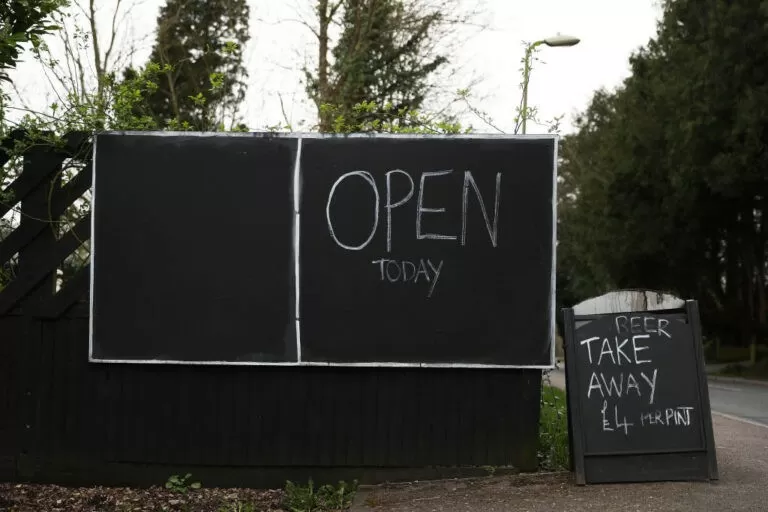 OPEN
TODAY
BEER
TAKE
AWAY
£4 PER PINT